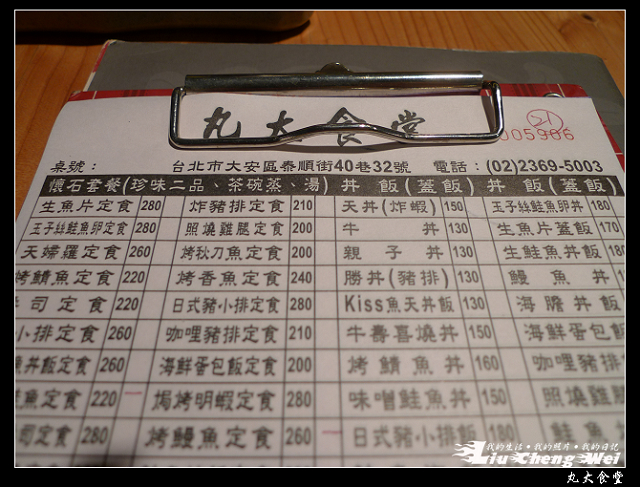 丸大食堂
21
005906
桌號：
台北市大安區泰順街40巷32號 電話：(02)2369-5003
懷石套餐(珍味二品、茶碗蒸、湯) 丼 飯(蓋飯) 丼 飯(蓋飯)
生魚片定食 280 炸豬排定食 210 天丼(炸蝦) 150 玉子絲鮭魚卵丼 180
玉子絲鮭魚卵定食 280 照燒雞腿定食 200 牛 丼 130 生魚片蓋飯 170
天婦羅定食 260 烤秋刀魚定食 200 親子丼 130 生鮭魚丼飯 180
烤鯖魚定食 220 烤香魚定食 240 勝丼(豬排) 130 鰻魚丼
壽司定食 220 日式豬小排定食 280 Kiss魚天丼飯 130 海膽丼飯
小排定食 260 咖哩豬排定食 210 牛壽喜燒丼 150 海鮮蛋包飯
魚丼飯定食 260 海鮮蛋包飯定食 200 烤鯖魚丼 160 咖哩豬排
魚定食 220 焗烤明蝦定食 280 味噌鮭魚丼 150 照燒雞腿
司定食 280 烤鰻魚定食 260 日式豬小排飯 180 鮭魚
我的生活·我的照片·我的日記
Liu Cheng Wei
丸大食堂